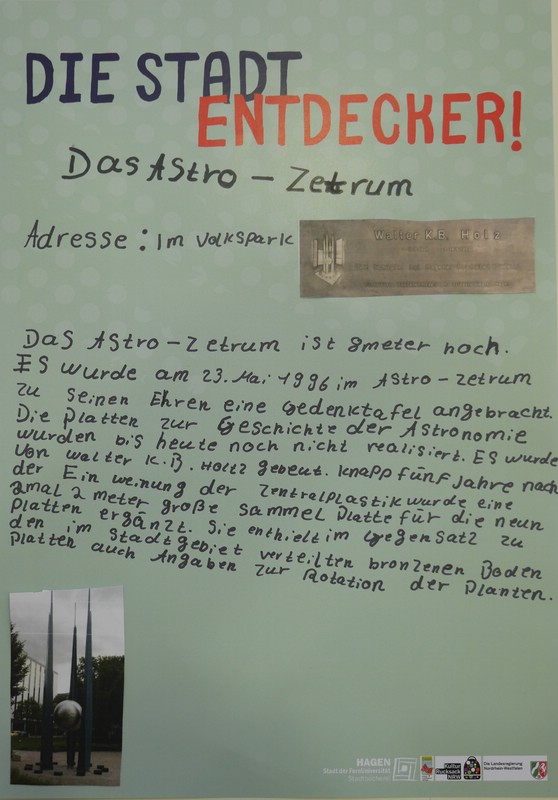 DIE STADT
ENTDECKER!
Das Astro - Zetrum
Adresse: im Volkspark
Walter K.B. Holz
Das Astro - Zetrum ist 8meter hoch.
ES wurde am 23. Mai 1996 im Astro-zetrum
zu seinen Ehren eine Gedenktafel angebracht.
Die Platten zur Geschichte der Astronomie
wurden bis heute noch nicht realisiert. ES wurde
von walter K.B. Holtz gebeut. Knapp fünf Jahre nach
der Ein weinung der Zentralplastik wurde eine
2mal 2 meter große sammel Platte für die neun
Platten ergänzt. Sie enthielt im Gegensatz zu
den im Stadtgebiet verteilten bronzenen Boden
Platten auch Angaben zur Rotation der Planten.
HAGEN
Stadt der FernUniversität
Stadtbücherei
Kultur
Rucksack
NRW
Die Landesregierung
Nordrhein-Westfalen